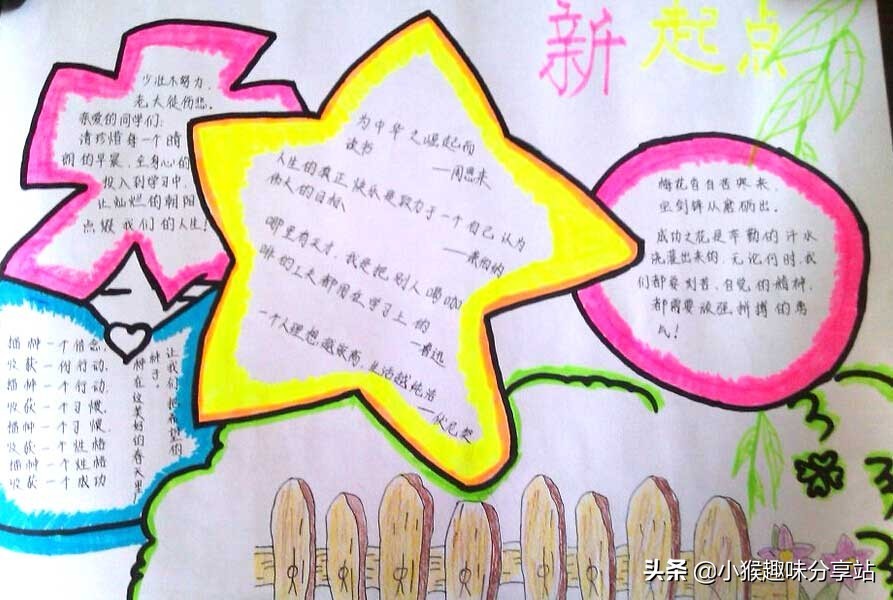 新起点
少壮不努力，
老大徒伤悲。
亲爱的同学们：
请珍惜每一个晴
朗的早晨，全身心的
投入到学习中，
让灿烂的朝阳
点缀我们的人生！
为中华之崛起而
读书
——周恩来
人生的真正快乐是致力于一个自己认为
伟大的目标。
——萧伯纳
哪里有天才，我是把别人喝咖
啡的工夫都用在学习上的
——鲁迅
一个人理想越崇高，生活越纯洁
——伏尼契
梅花香自苦寒来，
宝剑锋从磨砺出。
成功之花是辛勤的汗水
浇灌出来的，无论何时，我
们都要刻苦、自觉的精神，
都需要顽强拼搏的勇
气！
播种一个信念，
收获一份行动，
播种一个行动，
收获一个习惯，
播种一个习惯，
收获一个性格
播种一个性格
收获一个成功
让我们把希望的
种子，
种在这美好的春天里
头条 @小猴趣味分享站